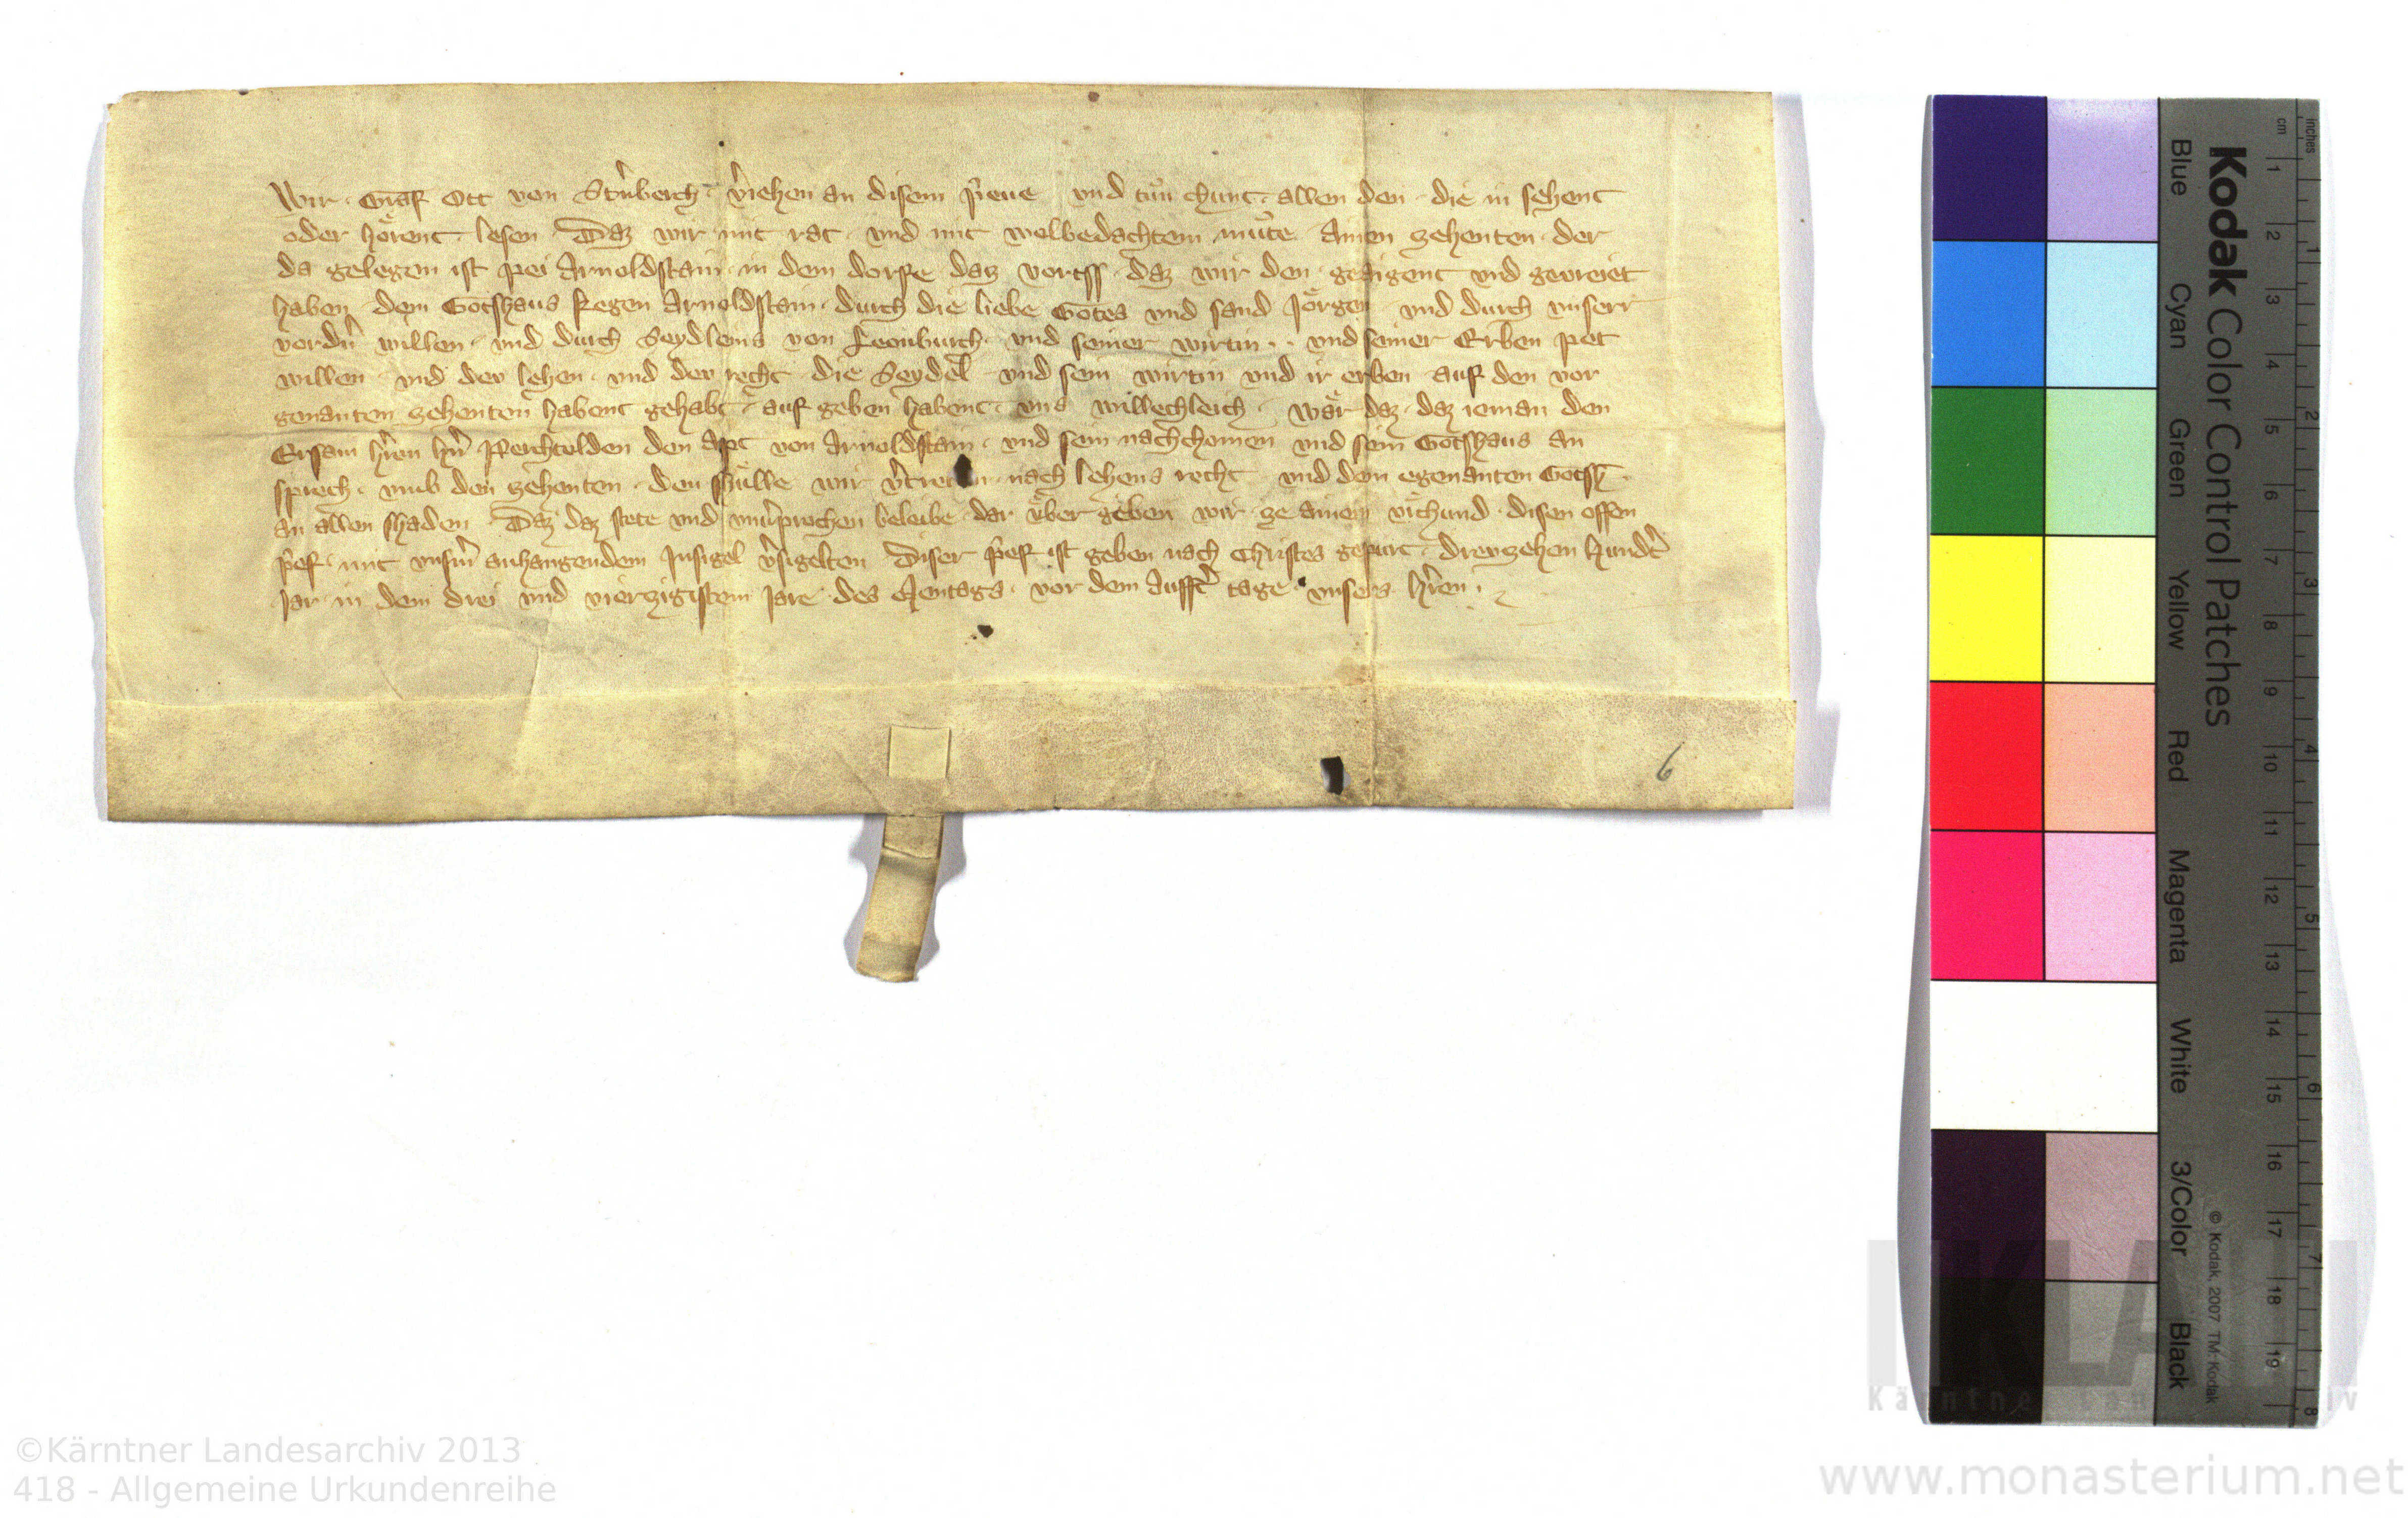 Wir · Graf Ott von St̾nberch · v̾iehen an disem p̾ieue vnd tuͦn chunt · allen den · die in sehent
oder hoͤrent · lesen · Daz wir mit rat · vnd mit wolbedachtem muͦte · Ainen zehenten · der
da gelegen ist pei Arnoldstain · in dem dorfe daz vortss · daz wir den · geaigent vnd gevreiet
haben · dem Gotshaus kegen Arnoldstain · durch die liebe Gotes vnd sand Joͤrgen · vnd durch vnserr
vordn̾ willen · vnd durch Seydleins von Leonburch · vnd seiner wirtin · · vnd seiner Erben pet
willen · vnd der lehen · vnd der recht · die Seydel · vnd sein wirtin vnd ir erben auf den vor
genanten zehenten habent gehabt · auf geben habent · vns willechleich · Waͤr daz · daz ieman den
Ersam h̾ren hn̾ Perchtolden den apt von Arnoldstain · vnd sein nachchomen vnd sein Gotshaus an
sprech · vmb den zehenten · den shuͤlle wir v̾treten · nach lehens recht · vnd dem egenanten Gotsh̄ ·
an allen shaden · Daz daz stete vnd vnu̾prochen beleibe · dar uͤber geben wir · ze ainem vͤrchund · disen offen
p̾ief · mit vnsm̾ anhangendem Jnsigel v̾sigelten · Diser p̾ief ist geben nach Christes gepurt · dreuzehen hundt̾
Jar · in dem drei vnd vierzigistem Jare · des Mentags · vor dem Aufft̾ tage · vnsers h̾ren ·
6
Kodak Color Control Patches
Blue Cyan Green Yellow Red Magenta White 3/Color Black
© Kodak, 2007 TM: Kodak
cm 1 2 3 4 5 6 7 8 9 10 11 12 13 14 15 16 17 18 19
inches 1 2 3 4 5 6 7 8
KLA
©Kärntner Landesarchiv 2013
418 - Allgemeine Urkundenreihe
www.monasterium.net